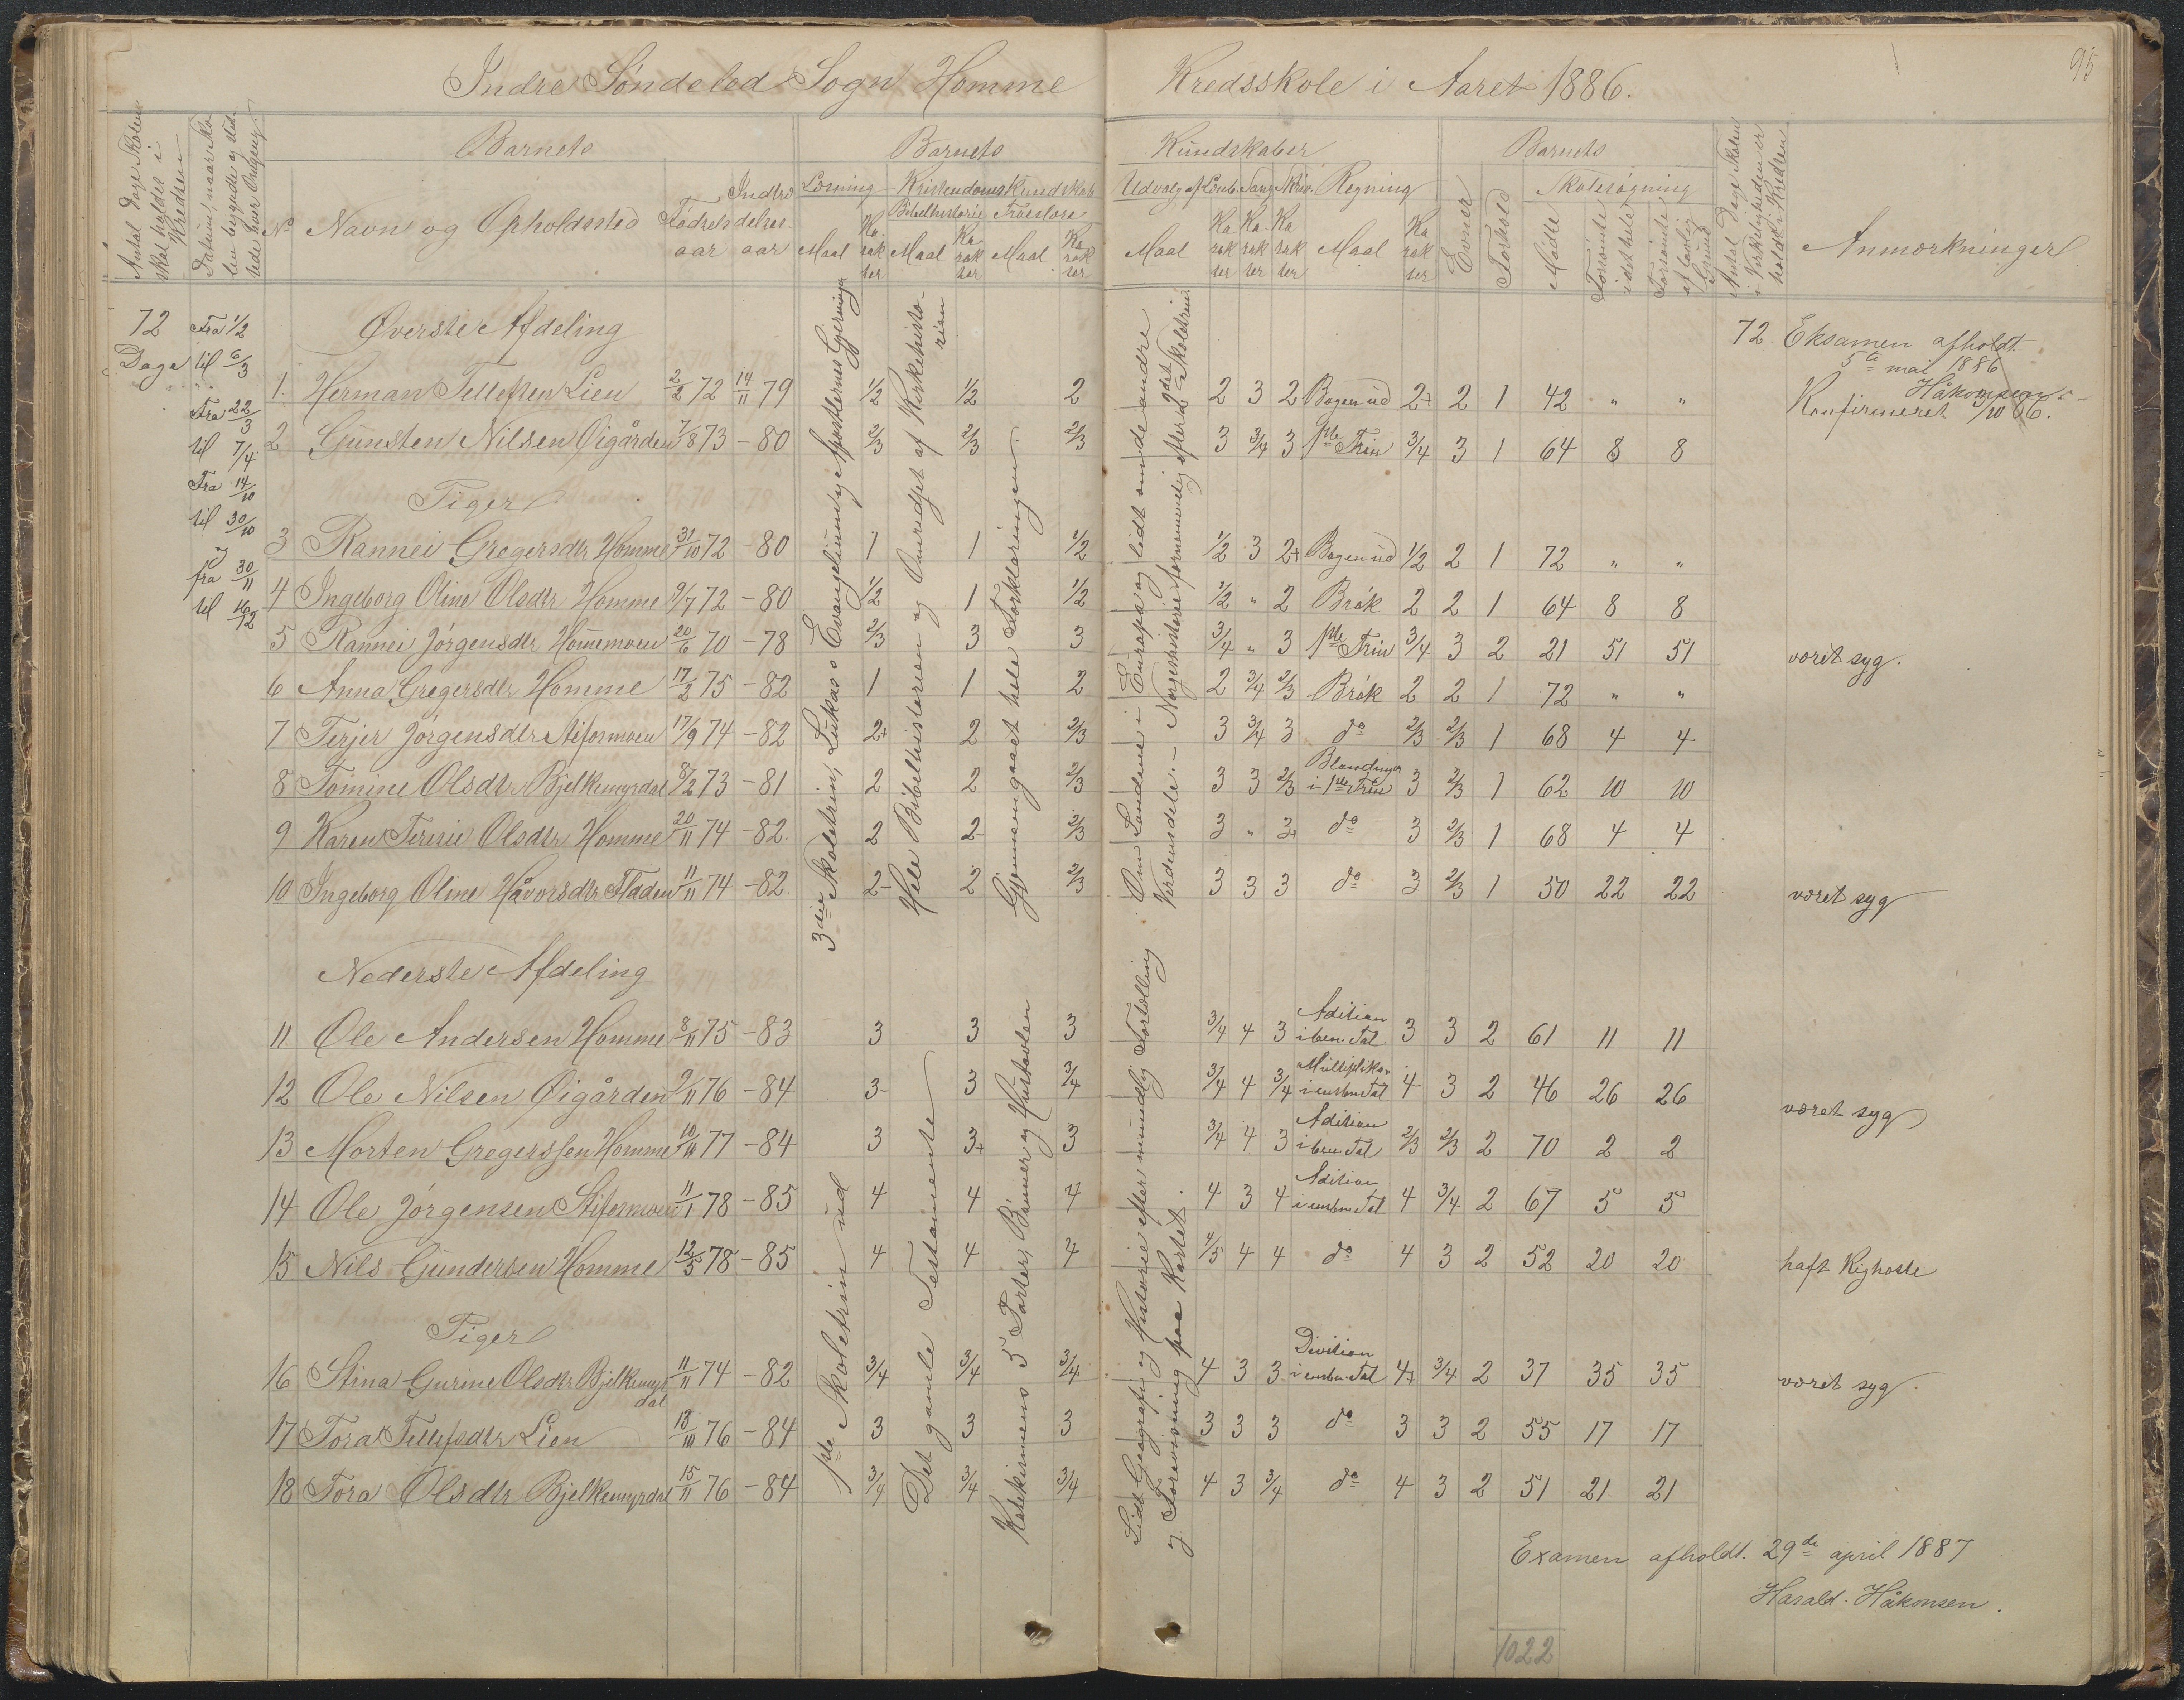 95
Indre Søndeled Sogn Homme Kredsskole i Aaret 1886.
Antal Dage Skolen skal holdes i Kredsen
Datum, naar Skolen begyndte og sluttede hver Omgang
Barnets
No Navn og Opholdssted Fødselsaar Indtrædelsesaar
Barnets Kundskaber
Læsning Kristendomskundskab
Bibelhistorie Troeslære
Maal Karakter Maal Karakter Maal Karakter
Udvalg af Læseb. Sang Skriv. Regning
Maal Karakter Karakter Karakter Maal Karakter
Barnets
Evner Forhold Skolesøgning
Mødte Forsømte i det hele Forsømte af lovlig Grund
Antal Dage Skolen i Virkeligheden er holdt i Kredsen
Anmærkninger
72 Dage
Fra 1/2
til 6/3
Fra 22/3
til 7/4
Fra 14/10
til 30/10
og
fra 30/11
til 16/12
Øverste Afdeling
72 Eksamen afholdt
5te mai 1886
Håkonsen
1. Herman Tellefsen Lien 2/2 72 14/11 79 1/2 1/2 2 2 3 2 Bogen ud 2+ 2 1 42 " " Konfirmeret 3/10 86.
2 Gunsten Nilsen Øigården 7/8 73 - 80 2/3 2/3 2/3 3 3/4 3 1ste Trin 3/4 3 1 64 8 8
Piger
3 Rannei Gregersdtr Homme 31/10 72 - 80 1 1 1/2 1/2 3 2+ Bogen ud 1/2 2 1 72 " "
4 Ingeborg Oline Olsdtr Homme 9/7 72 - 80 1/2 1 1/2 1/2 " 2 Brøk 2 2 1 64 8 8
5 Rannei Jørgensdtr Hommemoen 20/6 70 - 78 2/3 3 3 3/4 " 3 1ste Trin 3/4 3 2 21 51 51 været syg.
6 Anna Gregersdtr Homme 17/2 75 - 82 1 1 2 2 3/4 2/3 Brøk 2 2 1 72 " "
7 Terjer Jørgensdtr Stifosmoen 17/9 74 - 82 2+ 2 2/3 3 3/4 3 do 2/3 2/3 1 68 4 4
8 Tomine Olsdtr Bjelkemyrdal 8/2 73 - 81 2 2 2/3 3 3 2/3 Blandinger i 1ste Trin 3 2/3 1 62 10 10
9 Karen Teresie Olsdtr Homme 20/11 74 - 82. 2 2- 2/3 3 " 3+ do 3 2/3 1 68 4 4
10 Ingeborg Oline Håvorsdtr Fladen 11/11 74 - 82. 2- 2 2/3 3 3 3 do 3 2/3 1 50 22 22 været syg
3die Skoletrin, Lukas's Evangelium og Apostlernes Gjerninger
Hele Bibelhistorien og Omridset af Kirkehistorien
Gjennemgaaet hele Forklaringen.
Om Landene i Europa og lidt om de andre Verdensdele. – Norgeshistorie fornemmelig efter 2det Skoletrin.
Nederste Afdeling
11 Ole Andersen Homme 8/11 75 - 83 3 3 3 3/4 4 3 Adition i ben. Tal 3 3 2 61 11 11
12 Ole Nilsen Øigården 9/11 76 - 84 3- 3 3/4 3/4 4 3/4 Multiplika. i enben Tal 4 3 2 46 26 26 været syg
13 Morten Gregerssen Homme 10/11 77 - 84 3 3+ 3 3/4 4 3 Adition i ben. Tal 2/3 2/3 2 70 2 2
14 Ole Jørgensen Stifosmoen 11/1 78 - 85 4 4 4 4 3 4 Adition i enben. Tal 4 3/4 2 67 5 5
15 Nils Gundersen Homme 12/5 78 - 85 4 4 4 4/5 4 4 do 4 3 2 52 20 20 haft Kighoste
Piger
16 Stina Gurine Olsdtr Bjelkemyrdal 11/11 74 - 82 3/4 3/4 3/4 4 3 3 Division i enben. Tal 4+ 3/4 2 37 35 35 været syg.
17 Tora Tellefsdtr Lien 13/10 76 - 84 3 3 3 3 3 3 do 3 3 2 55 17 17
18 Tora Olsdtr Bjelkemyrdal 15/11 76 - 84 3/4 3/4 3/4 4 3 3/4 do 4 3 2 51 21 21
1ste Skoletrin ud
Det gamle Testamente
Katekismens 5 Parter, Bønner og Hustavlen
Lidt Geografi og Historie efter mundtlig Fortælling og Forevisning paa Kartet.
Examen afholdt. 29de april 1887
Harald Håkonsen.
1022